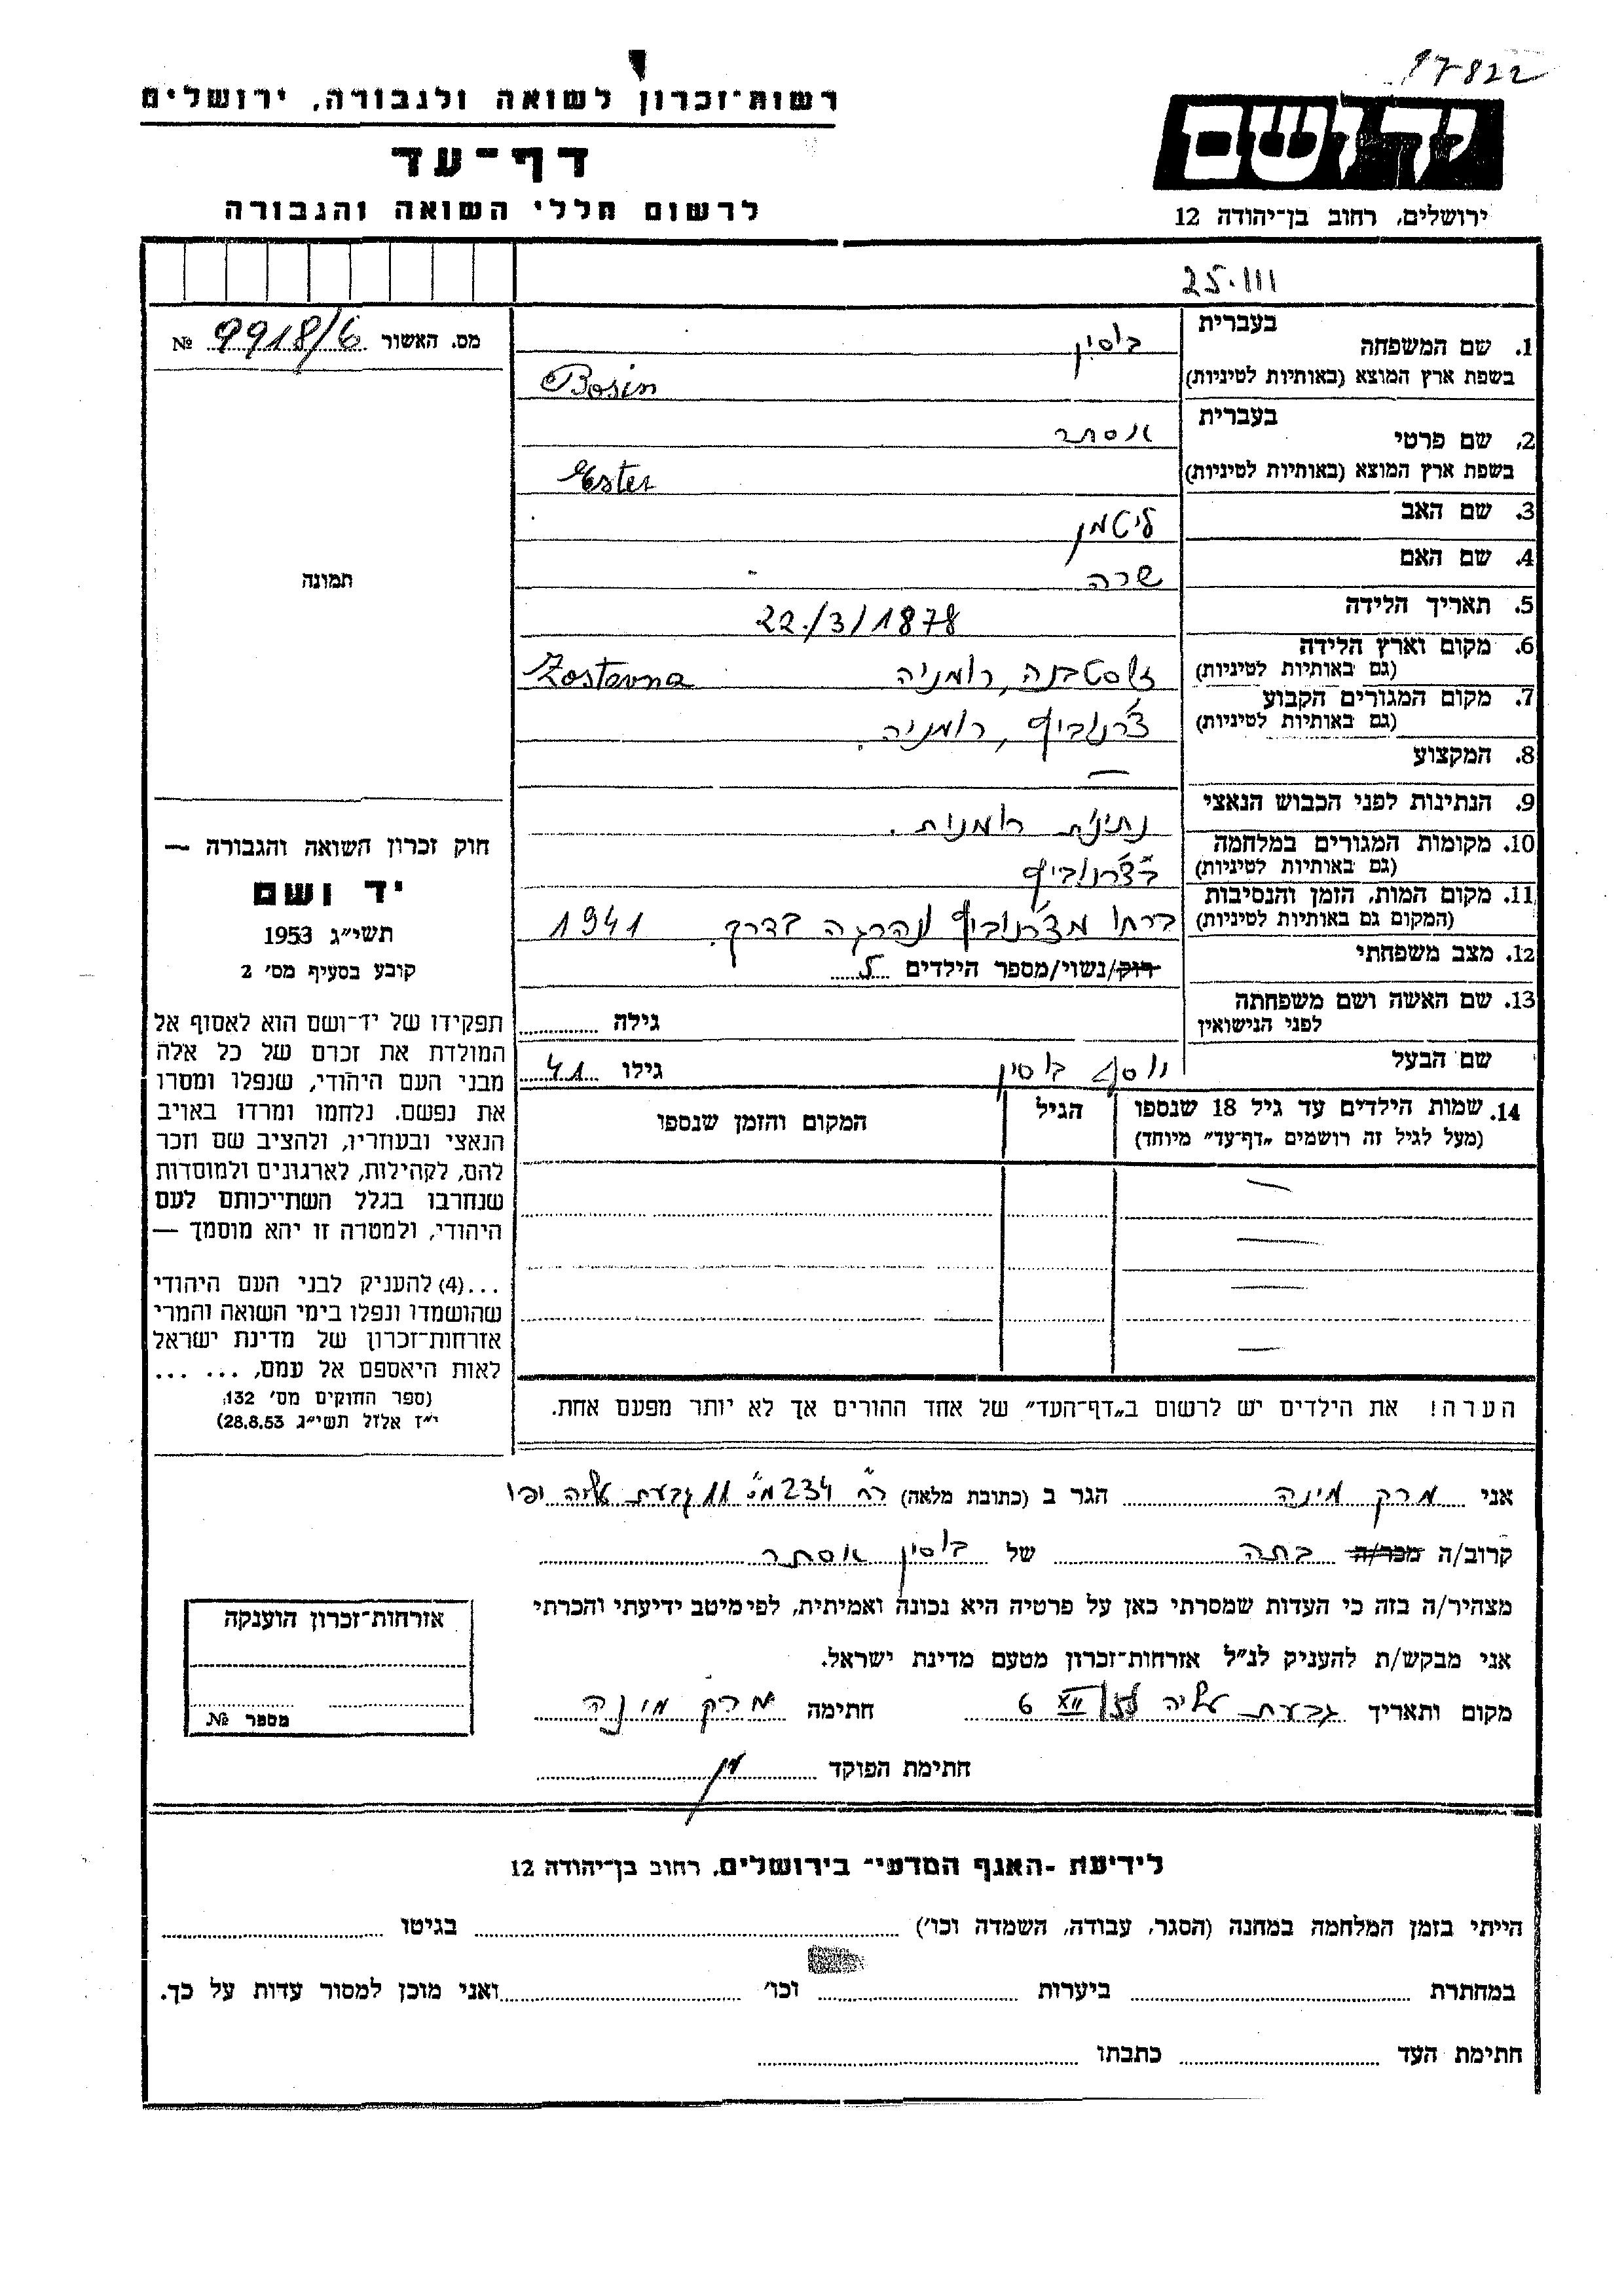 17822
רשות־זכרון לשואה ולגבורה, ירושלים
דף־עד
לרשום חללי השואה והגבורה
יד ושם
ירושלים, רחוב בן־יהודה 12
25.III
מס. האשור 9918/6 №
1. שם המשפחה בעברית בוסין
בשפת ארץ המוצא (באותיות לטיניות) Bosin
2. שם פרטי בעברית אסתר
בשפת ארץ המוצא (באותיות לטיניות) Ester
3. שם האב ליטמן
4. שם האם שרה
5. תאריך הלידה 22./3/1878
6. מקום וארץ הלידה (גם באותיות לטיניות) זוסטבנה, רומניה Zostavna
7. מקום המגורים הקבוע (גם באותיות לטיניות) צ'רנוביץ, רומניה.
8. המקצוע —
9. הנתינות לפני הכבוש הנאצי נתינת רומנית.
10. מקומות המגורים במלחמה (גם באותיות לטיניות) בצ'רנוביץ
11. מקום המות, הזמן והנסיבות (המקום גם באותיות לטיניות) ברחו מצ'רנוביץ ונהרגה בדרך. 1941
12. מצב משפחתי רוק/נשוי/מספר הילדים 5
13. שם האשה ושם משפחתה לפני הנישואין גילה
שם הבעל יוסף בוסין גילו 41
14. שמות הילדים עד גיל 18 שנספו הגיל המקום והזמן שנספו
(מעל לגיל זה רושמים „דף־עד" מיוחד)
—
—
—
—
הערה! את הילדים יש לרשום ב„דף־העד" של אחד ההורים אך לא יותר מפעם אחת.
תמונה
חוק זכרון השואה והגבורה —
יד ושם
תשי״ג 1953
קובע בסעיף מס׳ 2
תפקידו של יד־ושם הוא לאסוף אל
המולדת את זכרם של כל אלה
מבני העם היהודי, שנפלו ומסרו
את נפשם. נלחמו ומרדו באויב
הנאצי ובעוזריו, ולהציב שם וזכר
להם, לקהילות, לארגונים ולמוסדות
שנחרבו בגלל השתייכותם לעם
היהודי, ולמטרה זו יהא מוסמך —
...(4) להעניק לבני העם היהודי
שהושמדו ונפלו בימי השואה והמרי
אזרחות־זכרון של מדינת ישראל
לאות היאספם אל עמם, ... ...
(ספר החוקים מס׳ 132,
י״ז אלול תשי״ג 28.8.53)
אני מרק מינה הגר ב (כתובת מלאה) רח' 234 מס' 11 גבעת עליה יפו
קרוב/ה מכר/ה בתה של בוסין אסתר
מצהיר/ה בזה כי העדות שמסרתי כאן על פרטיה היא נכונה ואמיתית, לפי מיטב ידיעתי והכרתי
אני מבקש/ת להעניק לנ״ל אזרחות־זכרון מטעם מדינת ישראל.
מקום ותאריך גבעת עליה 6 XII 55 חתימה מרק מינה
חתימת הפוקד
אזרחות־זכרון הוענקה
מספר №
לידיעת -האגף המדעי- בירושלים, רחוב בן־יהודה 12
הייתי בזמן המלחמה במחנה (הסגר, עבודה, השמדה וכו׳) בגיטו
במחתרת ביערות וכו׳ ואני מוכן למסור עדות על כך.
חתימת העד כתבתו